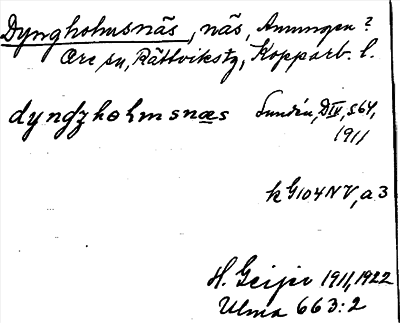 Dyngholmsnäs, näs, Amungen?
Ore sn, Rättvikstg, Kopparb. l.
dyngʒholmsnæs Sundén, DIV, s 64,
1911
k G104NV, a 3
H. Geijer 1911, 1922
Ulma 663:2